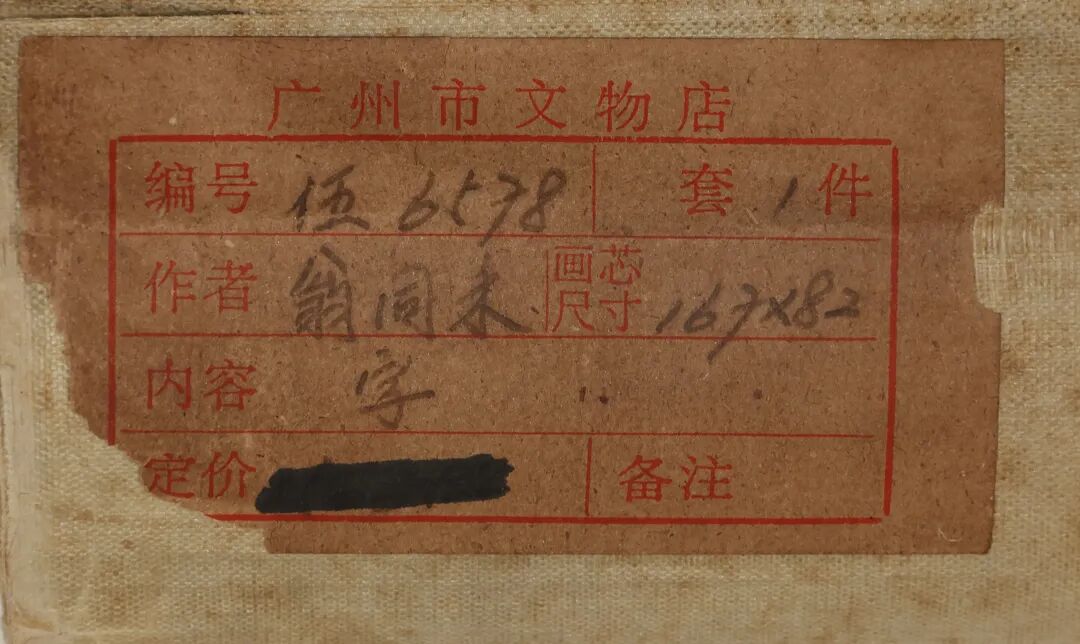 广州市文物店
编号 伍6578 套1件
作者 翁同木 画芯尺寸 167×82
内容 字
定价 备注